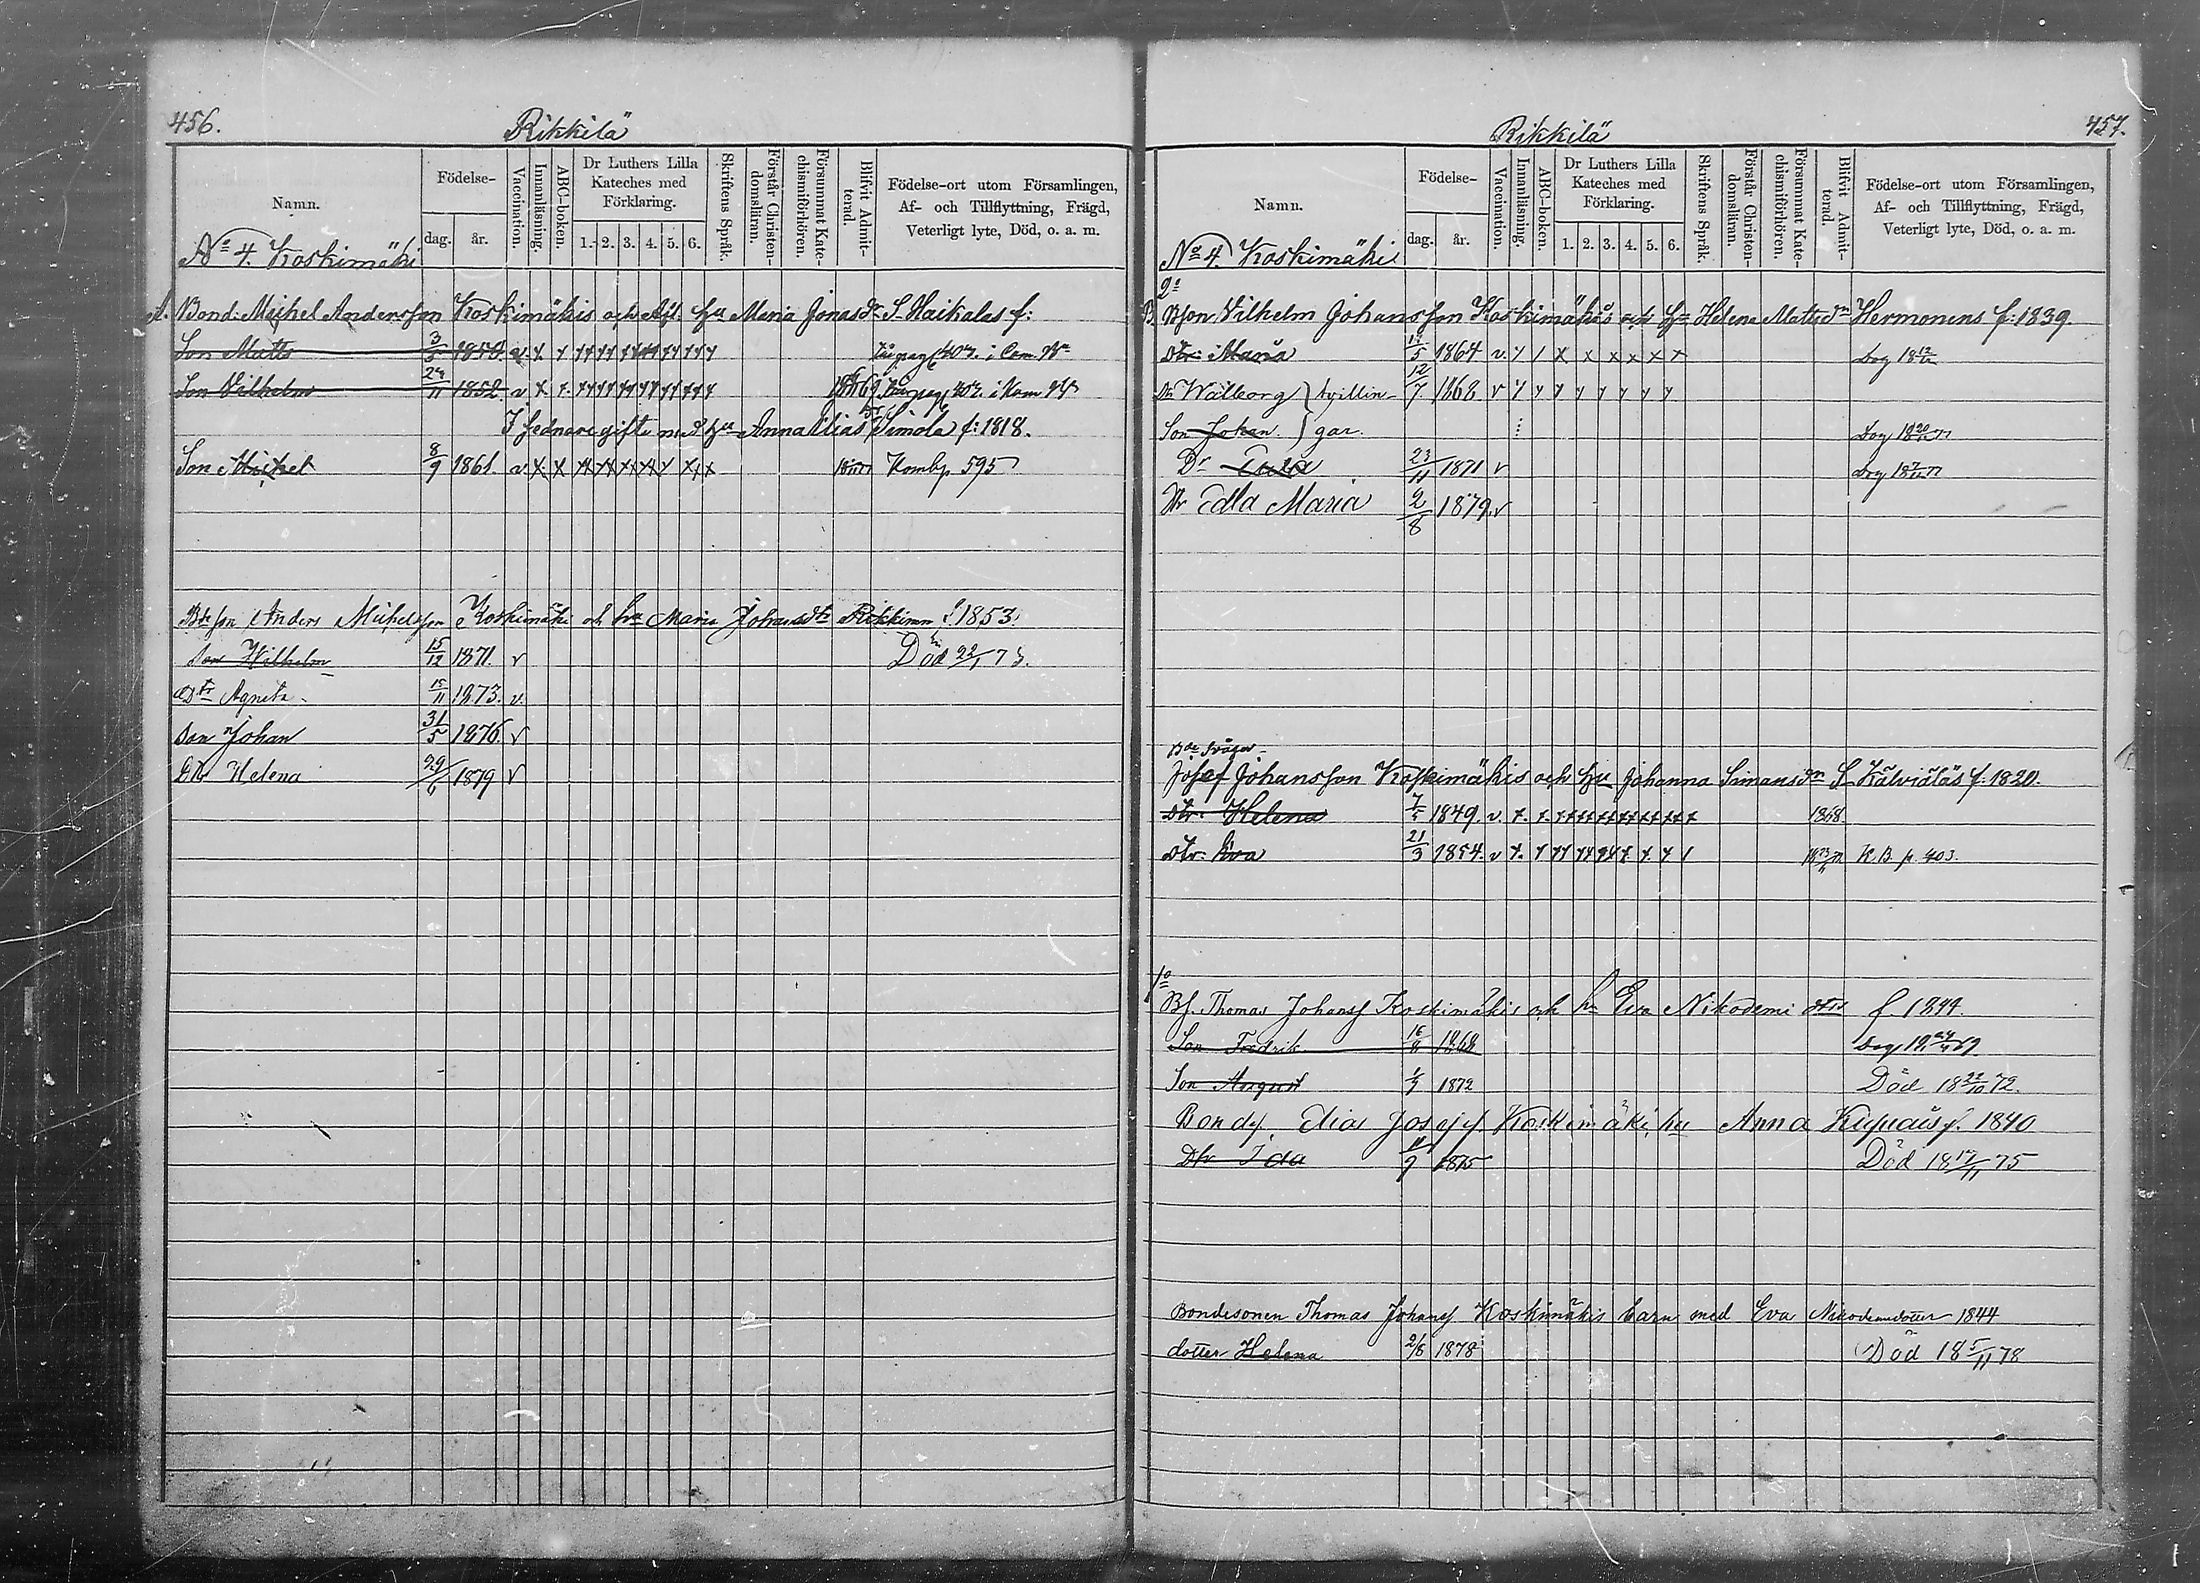 456.
Rikkilä
Namn.
Födelse-
dag.
år.
Vaccination.
Innanläsning.
ABC-boken.
Dr Luthers Lilla
Kateches med
Förklaring.
1. 2. 3. 4. 5. 6.
Skriftens Språk.
Förstår Christen-
domsläran.
Försummat Kate-
chismiförhören.
Blifvit Admit-
terad.
Födelse-ort utom Församlingen,
Af- och Tillflyttning, Frägd,
Veterligt lyte, Död, o. a. m.
No 4. Koskimäki
A. Bond: Michel Andersson Koskimäkis och hu Maria Jonasdr S. Maikalas f:
Son Matts 3/5 1850. v. x x
Son Vilhelm 29/11 1852. v. x x
I sednare gifte med hu Anna Elias dr Simola f: 1818.
Son Michel 8/9 1861. v x x Komb p. 595
Bde son Anders Michelsson Koskimäki och hu Maria Johansdtr Rikkinen f. 1853.
Son Wilhelm 15/12 1871. v Död 22/1 73.
Dtr Agneta 15/11 1873. v.
Son Johan 31/5 1876. v
Dtr Helena 29/6 1879 v
457.
Rikkilä
Namn.
Födelse-
dag.
år.
Vaccination.
Innanläsning.
ABC-boken.
Dr Luthers Lilla
Kateches med
Förklaring.
1. 2. 3. 4. 5. 6.
Skriftens Språk.
Förstår Christen-
domsläran.
Försummat Kate-
chismiförhören.
Blifvit Admit-
terad.
Födelse-ort utom Församlingen,
Af- och Tillflyttning, Frägd,
Veterligt lyte, Död, o. a. m.
No 4. Koskimäki
2o
B. Bson Vilhelm Johansson Koskimäkis och hu Helena Mattsdr Hermonens f: 1839.
Dtr: Maria 5 1864 v. Dog
Dr Walborg } tvillin- 12/7 1868 v
Son Johan. } gar. Dog
Dr 23/11 1871 v Dog
Dtr Edla Maria 2/8 1879. v
Bde Svåger
Josef Johansson Koskimäkis och hu Johanna Simonsdr S. Kälviäläs f: 1820.
Dtr: Helena 7/5 1849. v. x. x. 1868.
Dtr: Eva 21/3 1854. v x. K. B. p. 403.
1o
Bs. Thomas Johanss Koskimäkis och hu Eva Nikodemi dtr f. 1844.
Son Fredrik 16/8 1868 Dog
Son August 1/9 1872 Död 18 22/10 72.
Bonds. Elias Josefs. Koskimäki, hu Anna f. 1840
Dtr Ida 9 1875 Död 18 17/11 75
Bondesonen Thomas Johanss Koskimäkis barn med Eva Nikodemidotter 1844
dotter Helena 2/8 1878 Död 18 5/11 78